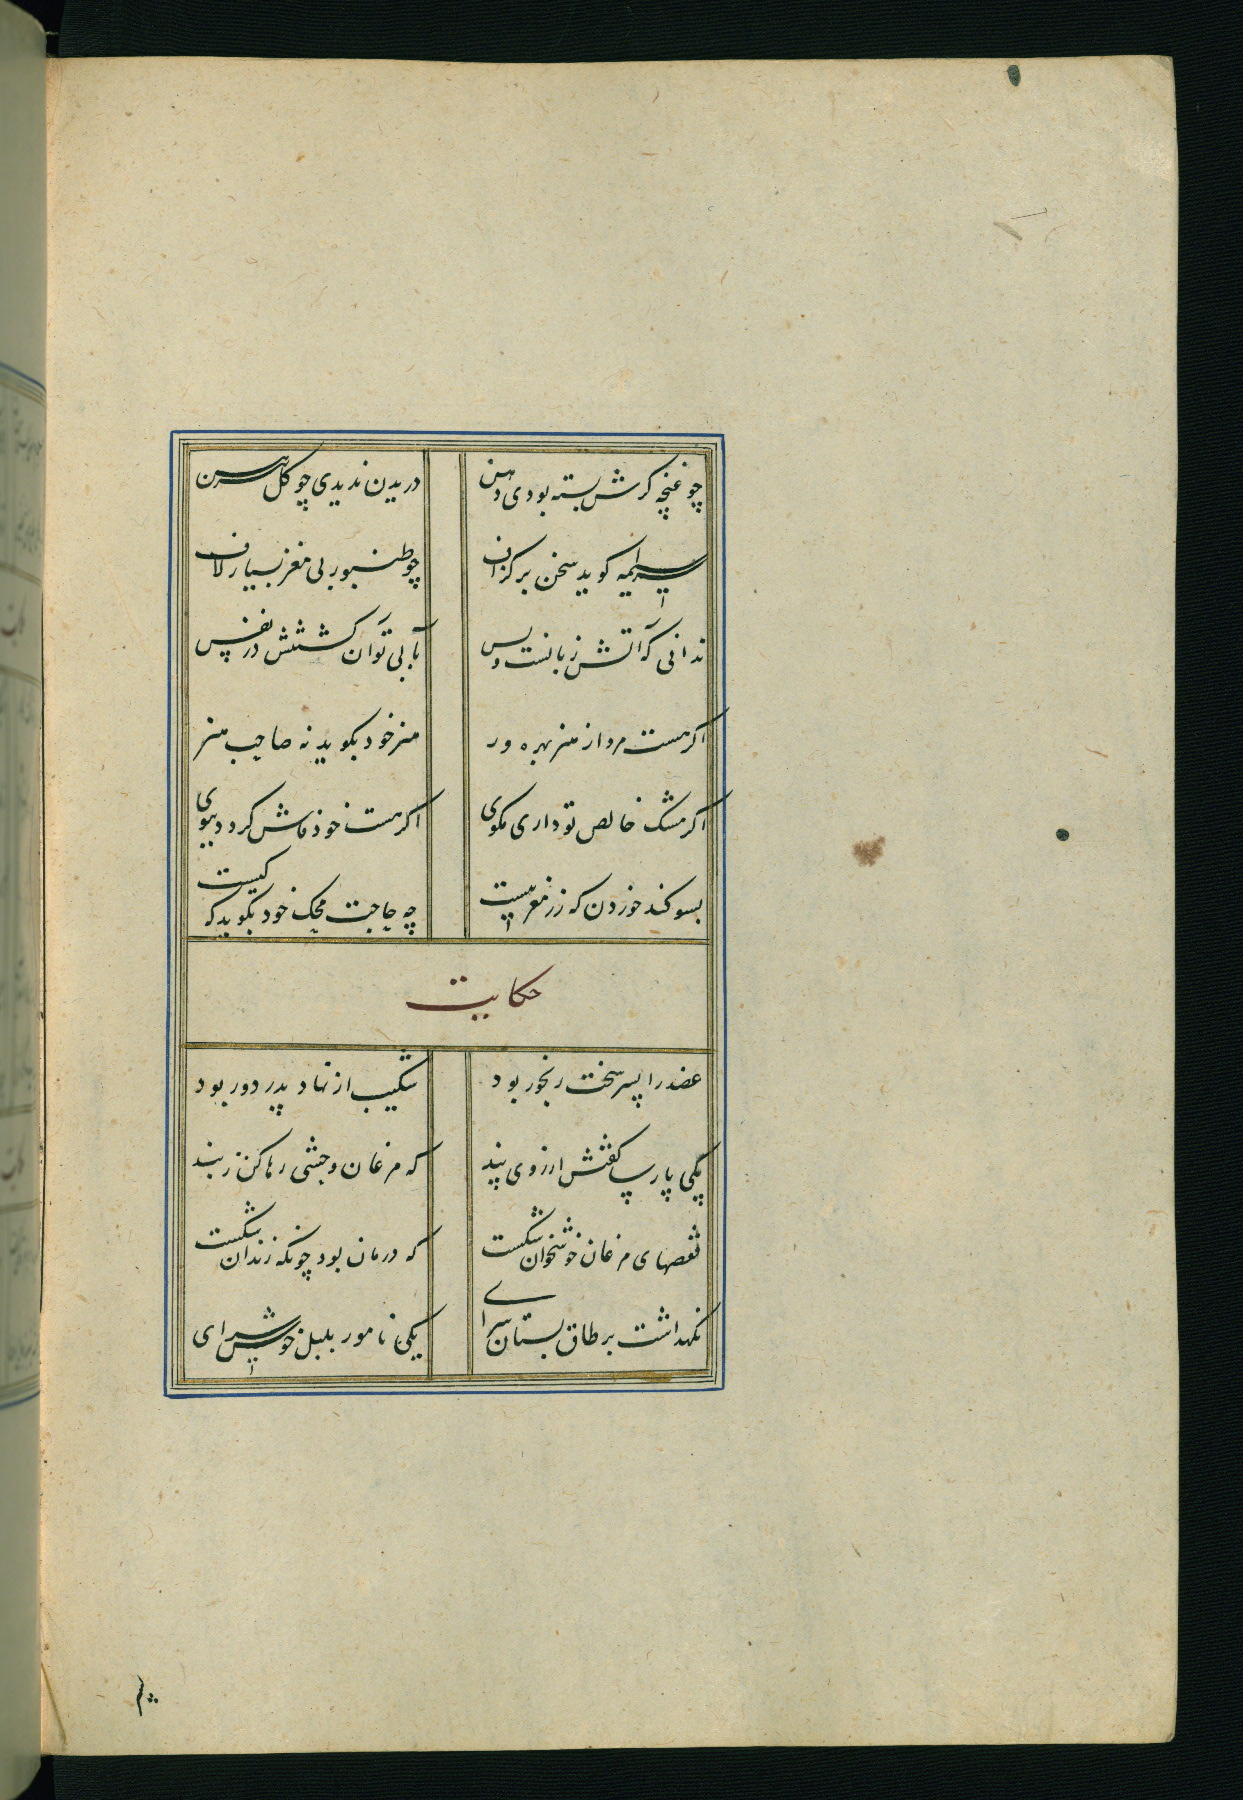 چو غنچه کرش بسته بودی دهن دریدن ندیدی چو کل پیرهن
سراسیمه کوید سخن بر کزاف چو طنبور بی مغز بسیار لاف
ندانی که آتش زبانست و بس بآبی توان کشتنش در نفس
اکر هست مرد از هنر بهره ور هنر خود بکوید نه صاحب هنر
اکر مشک خالص تو داری مکوی اکر هست خود فاش کردد ببوی
بسوکند خوردن که زر مغربیست چه حاجت محک خود بکوید که کیست
حکایت
عضد را پسر سخت رنجور بود شکیب از نهاد پدر دور بود
یکی پارسا کفتش از روی پند که مرغان وحشی رها کن ز بند
قفصهای مرغان خوشخوان شکست که در مان بود چونکه زندان شکست
نکهداشت بر طاق بستان سرای یکی نامور بلبل خوش سرای